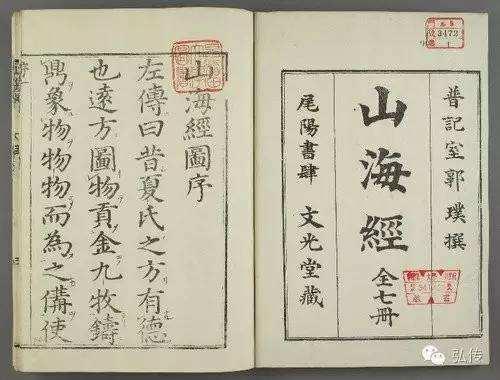 晉記室郭璞撰
山海經
全七冊
尾陽書肆 文光堂藏
山海經圖序
左傳曰昔夏氏之方有德
也遠方圖物貢金九牧鑄
象物物物而為之備使
3472
1
弘传